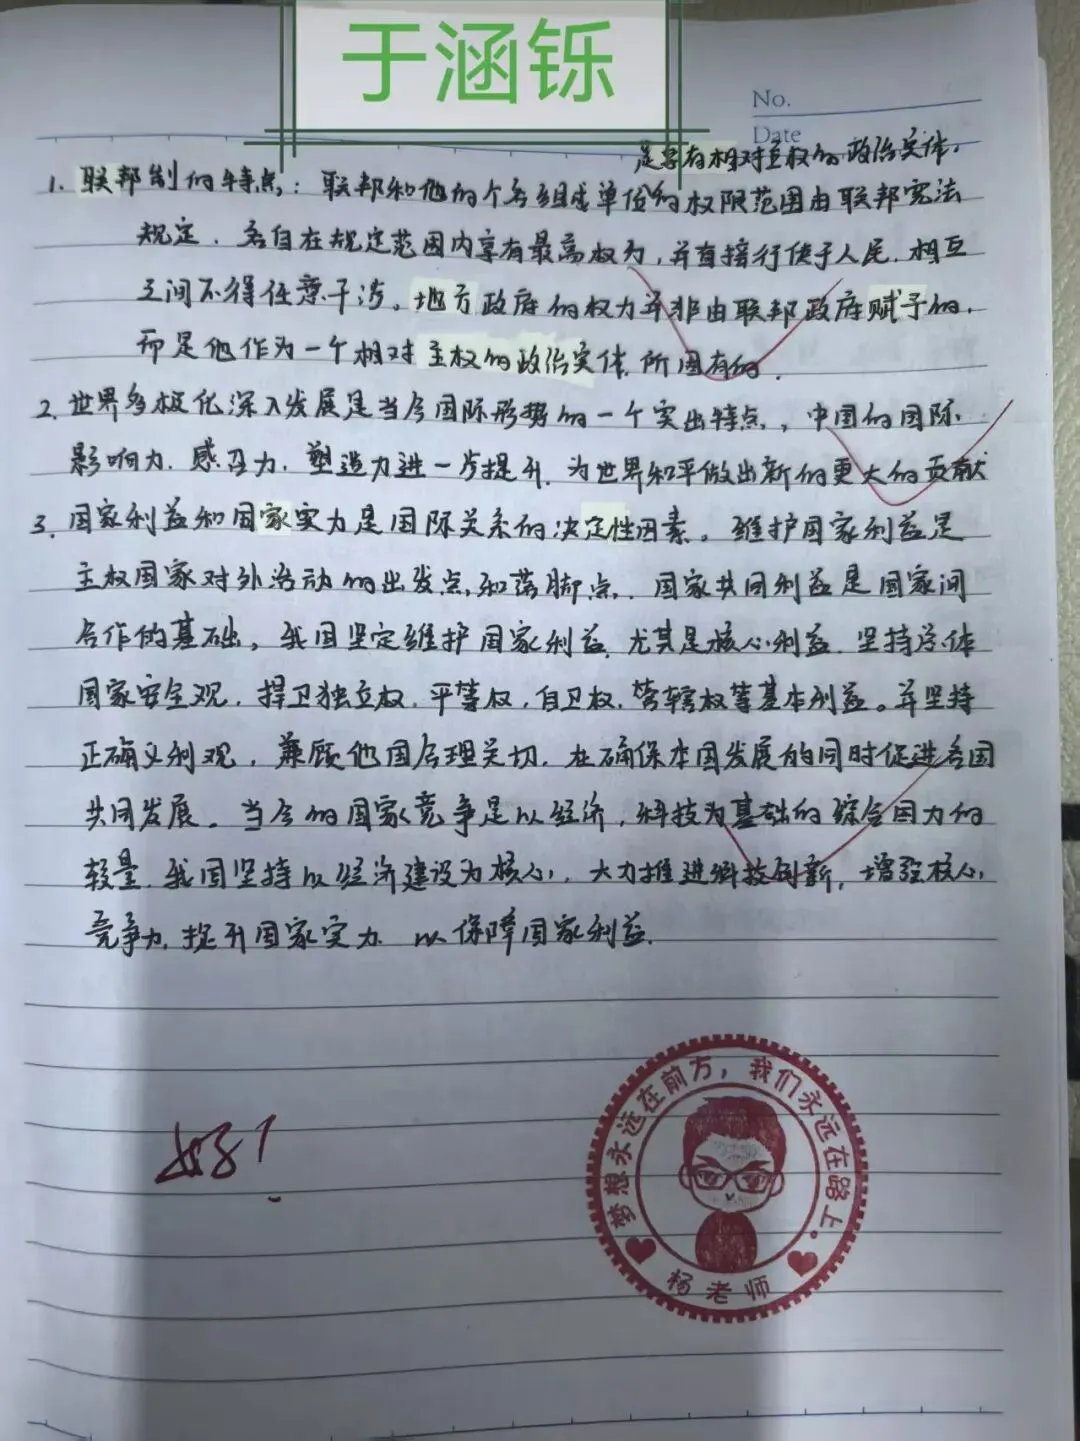 于涵铄
No.
Date
是享有相对主权的政治实体.
1. 联邦制的特点: 联邦和他的个各组成单位的权限范围由联邦宪法
规定. 各自在规定范围内享有最高权力, 并直接行使于人民. 相互
之间不得任意干涉. 地方政府的权力并非由联邦政府赋予的,
而是他作为一个相对主权的政治实体, 所固有的.
2. 世界多极化深入发展是当今国际形势的一个突出特点, 中国的国际
影响力. 感召力. 塑造力进一步提升, 为世界和平做出新的更大的贡献
3. 国家利益和国家实力是国际关系的决定性因素。维护国家利益是
主权国家对外活动的出发点和落脚点. 国家共同利益是国家间
合作的基础。我国坚定维护国家利益, 尤其是核心利益. 坚持总体
国家安全观, 捍卫独立权, 平等权, 自卫权, 管辖权等基本利益。并坚持
正确义利观, 兼顾他国合理关切, 在确保本国发展的同时促进各国
共同发展。当今的国家竞争是以经济, 科技为基础的综合国力的
较量. 我国坚持以经济建设为核心, 大力推进科技创新, 增强核心
竞争力, 提升国家实力 以保障国家利益.
好!
梦想永远在前方，我们永远在路上。
杨老师